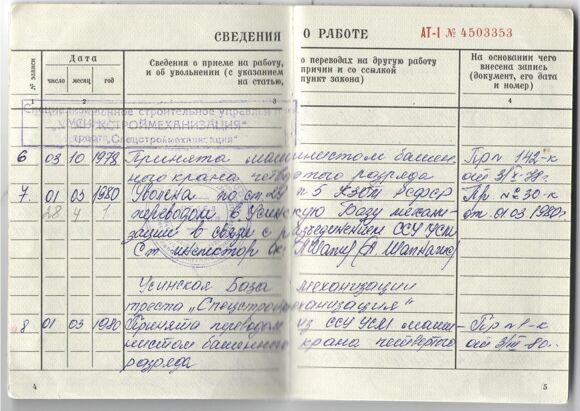 СВЕДЕНИЯ О РАБОТЕ АТ-I № 4503353
№ записи
Дата
Сведения о приеме на работу, о переводах на другую работу
и об увольнении (с указанием причин и со ссылкой
на статью, пункт закона)
На основании чего
внесена запись
(документ, его дата
и номер)
число месяц год
1 2 3 4
Специализированное строительное управление
"УСИНСКСТРОЙМЕХАНИЗАЦИЯ"
треста "Спецстроймеханизация"
6 03 10 1978 Принята машинистом башен- Пр № 142-к
ного крана четвертого разряда от 3/X-78г.
7. 01 03 1980 Уволена по ст. 29 п 5 КЗоТ РСФСР Пр № 30-к
28 4 1 переводом в Усинскую Базу механи- от 01 03 1980г.
зации в связи с разъединением ССУ УСМ
Ст инспектор ок
Усинская База механизации
треста „Спецстроймеханизация"
8 01 03 1980 Принята переводом из ССУ УСМ маши- Пр № 1-к
нистом башенного крана четвертого от 3/III-80г.
разряда
4 5